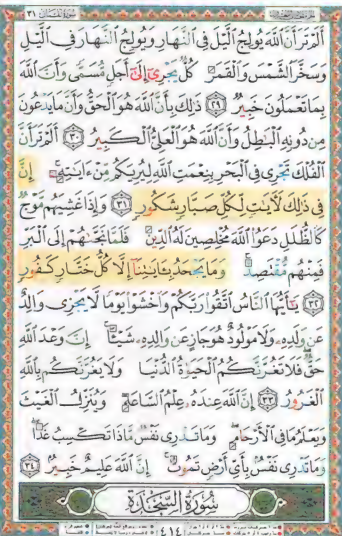 ٣١ سُورَةُ لُقْمَان
أَلَمْ تَرَ أَنَّ ٱللَّهَ يُولِجُ ٱلَّيْلَ فِى ٱلنَّهَارِ وَيُولِجُ ٱلنَّهَارَ فِى ٱلَّيْلِ
وَسَخَّرَ ٱلشَّمْسَ وَٱلْقَمَرَ كُلٌّ يَجْرِىٓ إِلَىٰٓ أَجَلٍ مُّسَمًّى وَأَنَّ ٱللَّهَ
بِمَا تَعْمَلُونَ خَبِيرٌ ٢٩ ذَٰلِكَ بِأَنَّ ٱللَّهَ هُوَ ٱلْحَقُّ وَأَنَّ مَا يَدْعُونَ
مِن دُونِهِ ٱلْبَٰطِلُ وَأَنَّ ٱللَّهَ هُوَ ٱلْعَلِىُّ ٱلْكَبِيرُ ٣٠ أَلَمْ تَرَ أَنَّ
ٱلْفُلْكَ تَجْرِى فِى ٱلْبَحْرِ بِنِعْمَتِ ٱللَّهِ لِيُرِيَكُم مِّنْ ءَايَٰتِهِۦٓ إِنَّ
فِى ذَٰلِكَ لَءَايَٰتٍ لِّكُلِّ صَبَّارٍ شَكُورٍ ٣١ وَإِذَا غَشِيَهُم مَّوْجٌ
كَٱلظُّلَلِ دَعَوُا۟ ٱللَّهَ مُخْلِصِينَ لَهُ ٱلدِّينَ فَلَمَّا نَجَّىٰهُمْ إِلَى ٱلْبَرِّ
فَمِنْهُم مُّقْتَصِدٌ وَمَا يَجْحَدُ بِـَٔايَٰتِنَآ إِلَّا كُلُّ خَتَّارٍ كَفُورٍ
٣٢ يَٰٓأَيُّهَا ٱلنَّاسُ ٱتَّقُوا۟ رَبَّكُمْ وَٱخْشَوْا۟ يَوْمًا لَّا يَجْزِى وَالِدٌ
عَن وَلَدِهِۦ وَلَا مَوْلُودٌ هُوَ جَازٍ عَن وَالِدِهِۦ شَيْـًٔا إِنَّ وَعْدَ ٱللَّهِ
حَقٌّ فَلَا تَغُرَّنَّكُمُ ٱلْحَيَوٰةُ ٱلدُّنْيَا وَلَا يَغُرَّنَّكُم بِٱللَّهِ
ٱلْغَرُورُ ٣٣ إِنَّ ٱللَّهَ عِندَهُۥ عِلْمُ ٱلسَّاعَةِ وَيُنَزِّلُ ٱلْغَيْثَ
وَيَعْلَمُ مَا فِى ٱلْأَرْحَامِ وَمَا تَدْرِى نَفْسٌ مَّاذَا تَكْسِبُ غَدًا
وَمَا تَدْرِى نَفْسٌۢ بِأَىِّ أَرْضٍ تَمُوتُ إِنَّ ٱللَّهَ عَلِيمٌ خَبِيرٌۢ ٣٤
سُورَةُ السَّجْدَةِ
٤١٤